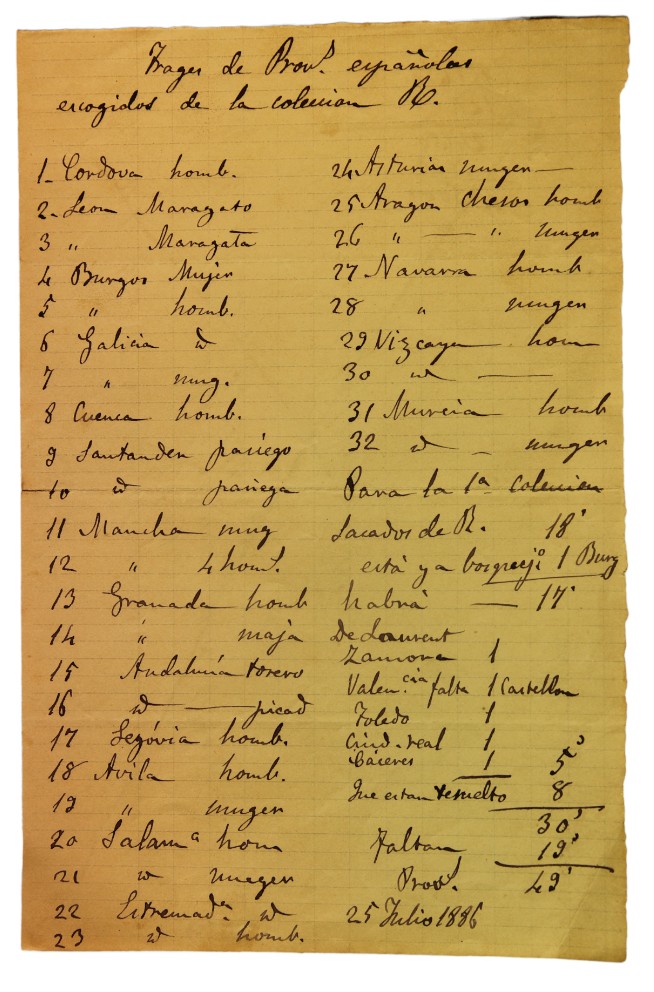 Trages de Prov.s españolas
escogidos de la colecion R.
1_ Cordova homb.
2_ Leon Maragato
3 " Maragata
4 Burgos Mujer
5 " homb.
6 Galicia id
7 " mug.
8 Cuenca homb.
9 Santander pasiego
10 id pasiega
11 Mancha mug
12 " 4 hom.s
13 Granada homb
14 " maja
15 Andalucia torero
16 id — picad
17 Segóvia homb.
18 Avila homb.
19 " muger
20 Salam.a hom
21 id muger
22 Estremad.a id
23 id homb.
24 Asturias muger —
25 Aragon chesos homb
26 " — " muger
27 Navarra homb
28 " muger
29 Vizcaya hom
30 id —
31 Murcia homb
32 id _ muger
Para la 1a colecion
Sacados de R. 18'
está ya 1 Burg
habrá — 17'
De Laurent
Zamora 1
Valen.cia falta 1 Castellon
Toledo 1
Ciud-real 1
Cáceres 1 5'
Que estan resuelto 8
30'
Faltan 19'
Prov.s 49'
25 Julio 1886